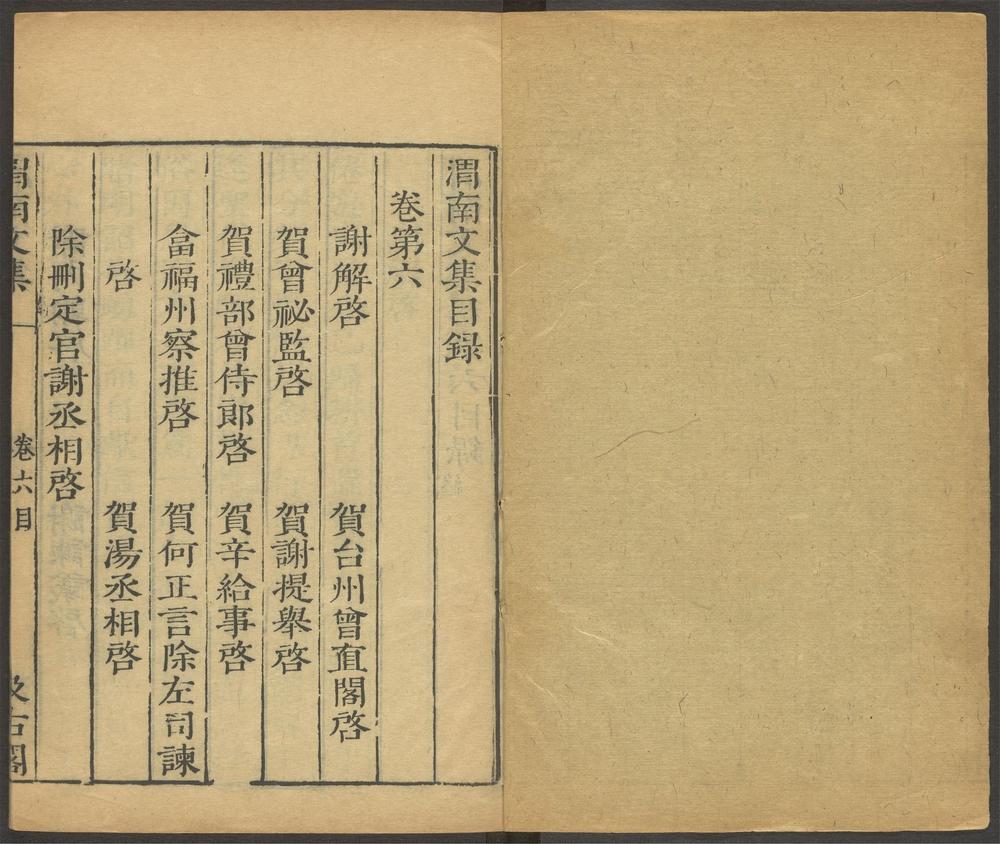 渭南文集目録
卷第六
謝解啓 賀台州曾直閣啓
賀曾祕監啓 賀謝提舉啓
賀禮部曾侍郎啓 賀辛給事啓
畣福州察推啓 賀何正言除左司諫
啓 賀湯丞相啓
除刪定官謝丞相啓
渭南文集 卷六目 汲古閣